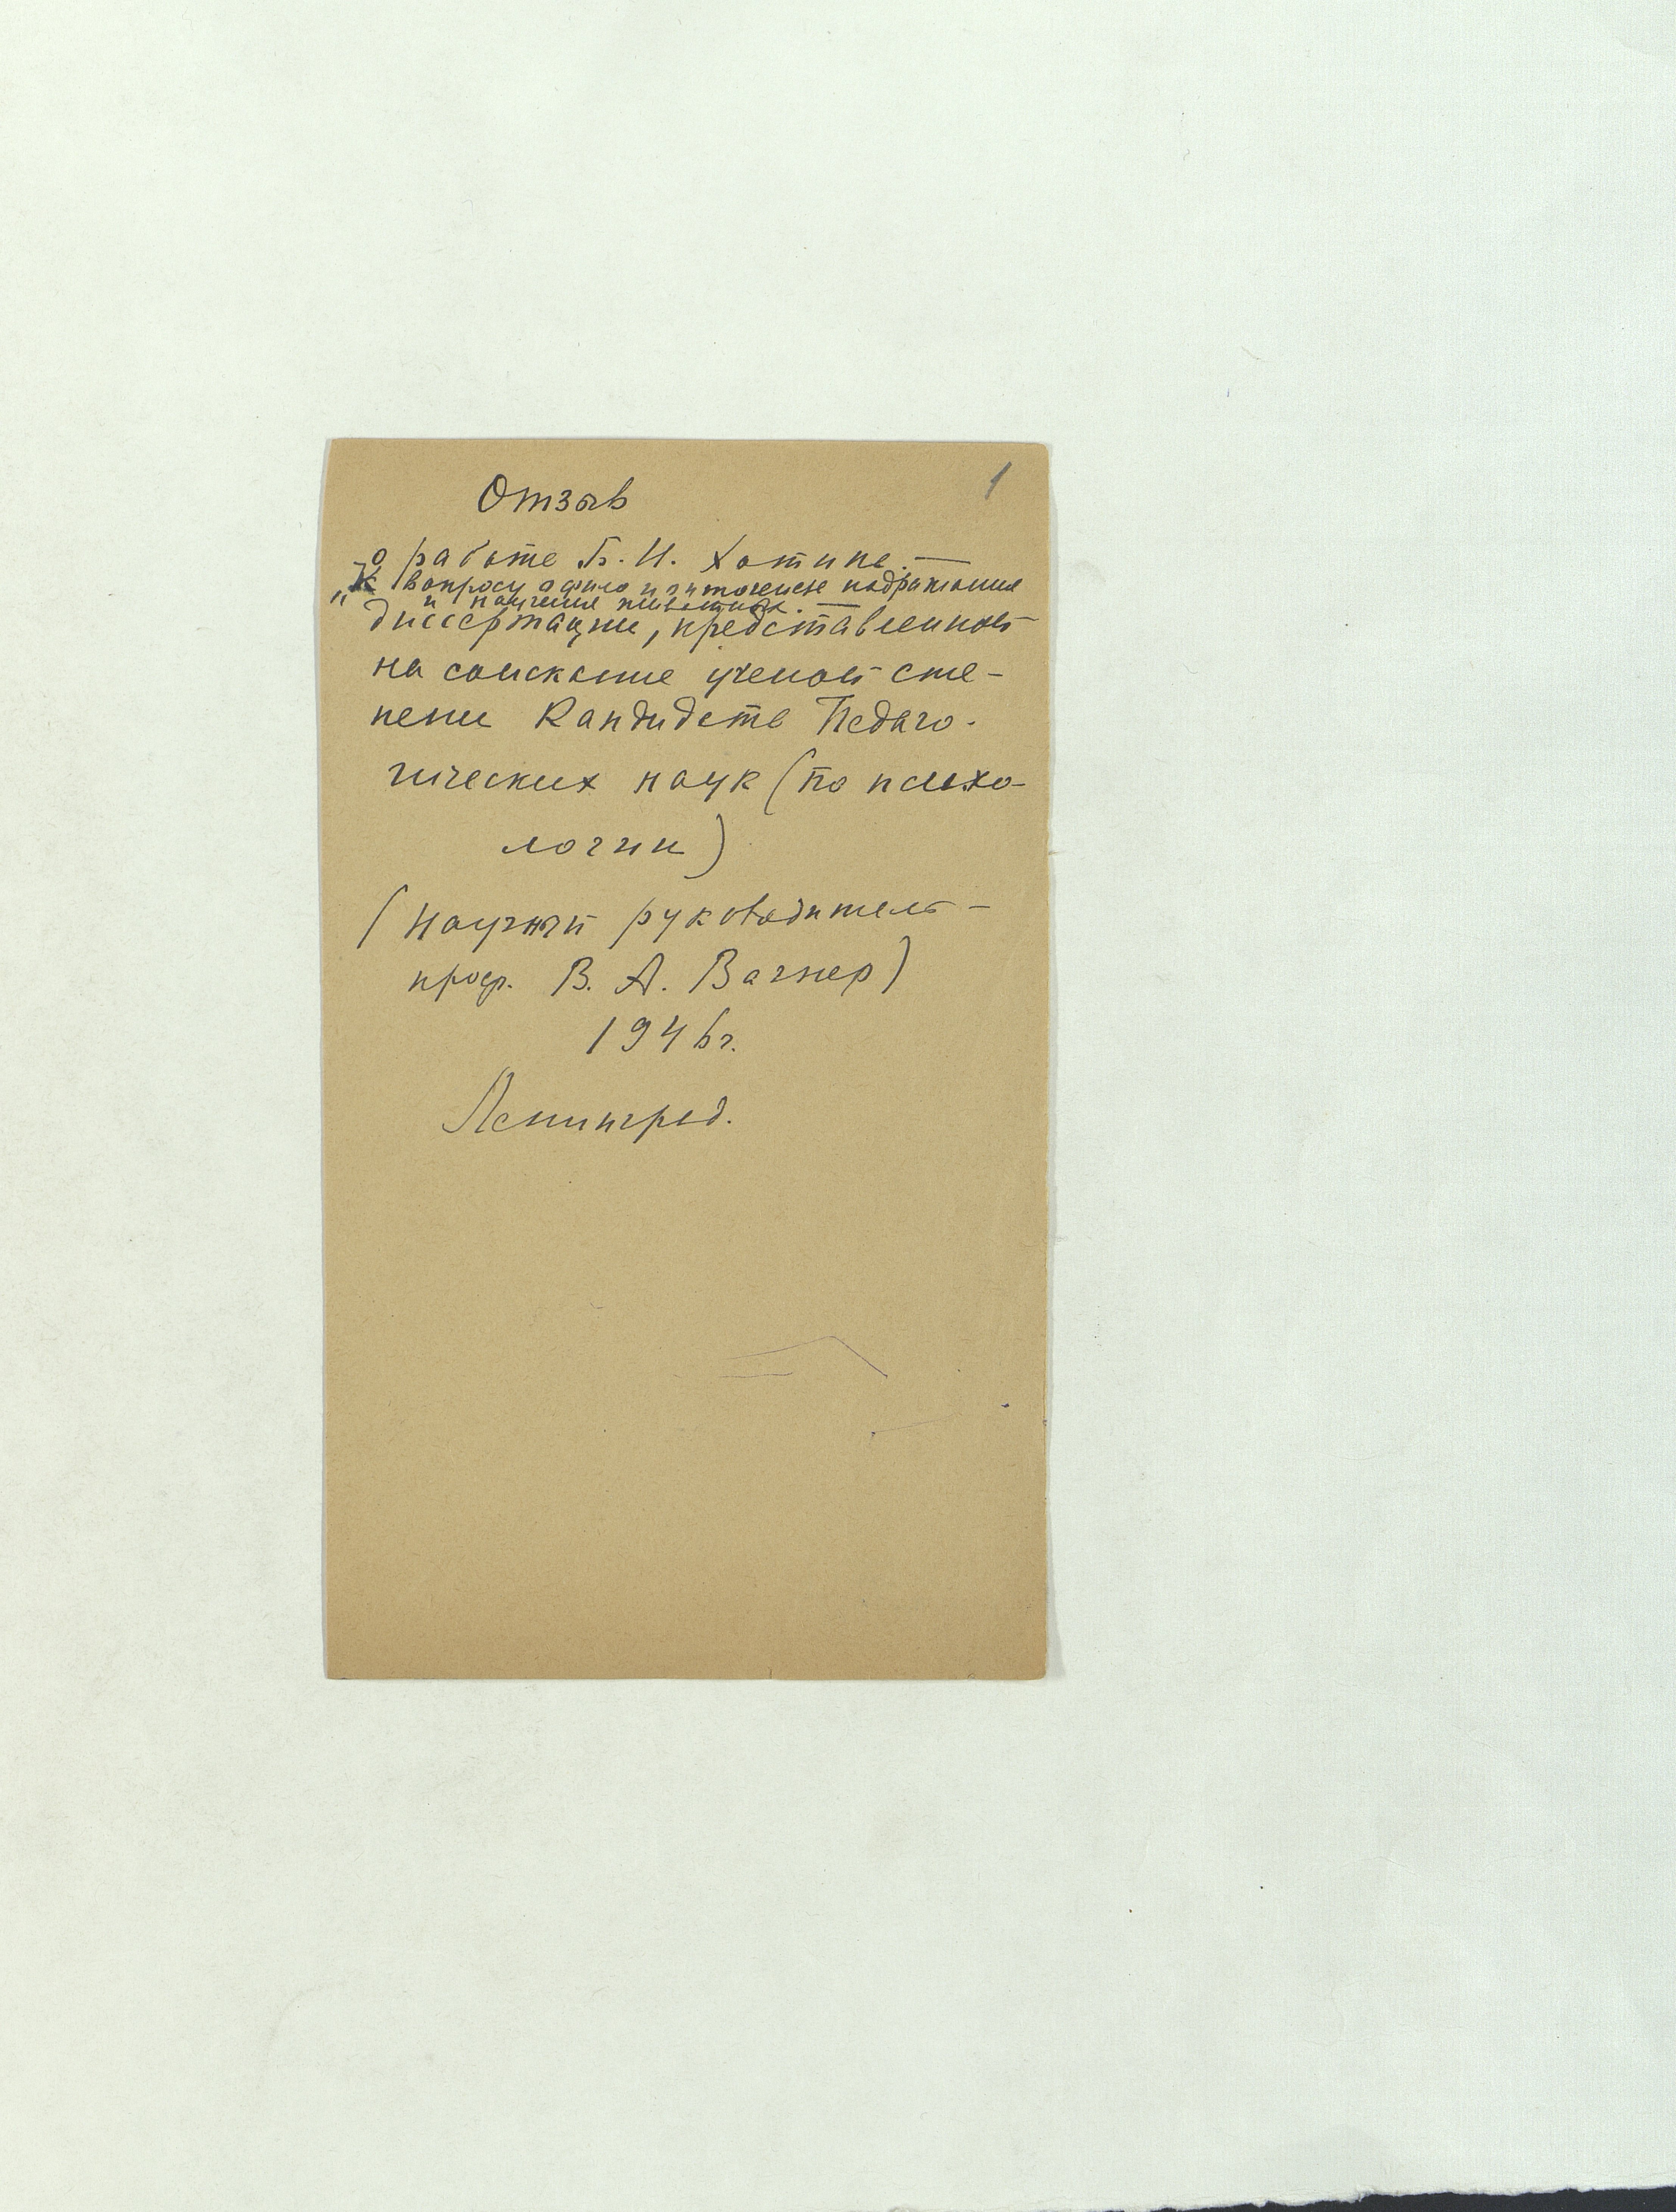 1
Отзыв
о работе Б. И. Хотина. —
„К вопросу о фило и онтогенезе подражания
и научения животных. —
диссертации, представленной
на соискание ученой сте-
пени Кандидата Педаго-
гических наук (по психо-
логии)
(Научный руководитель —
проф. В. А. Вагнер)
1946г.
Ленинград.